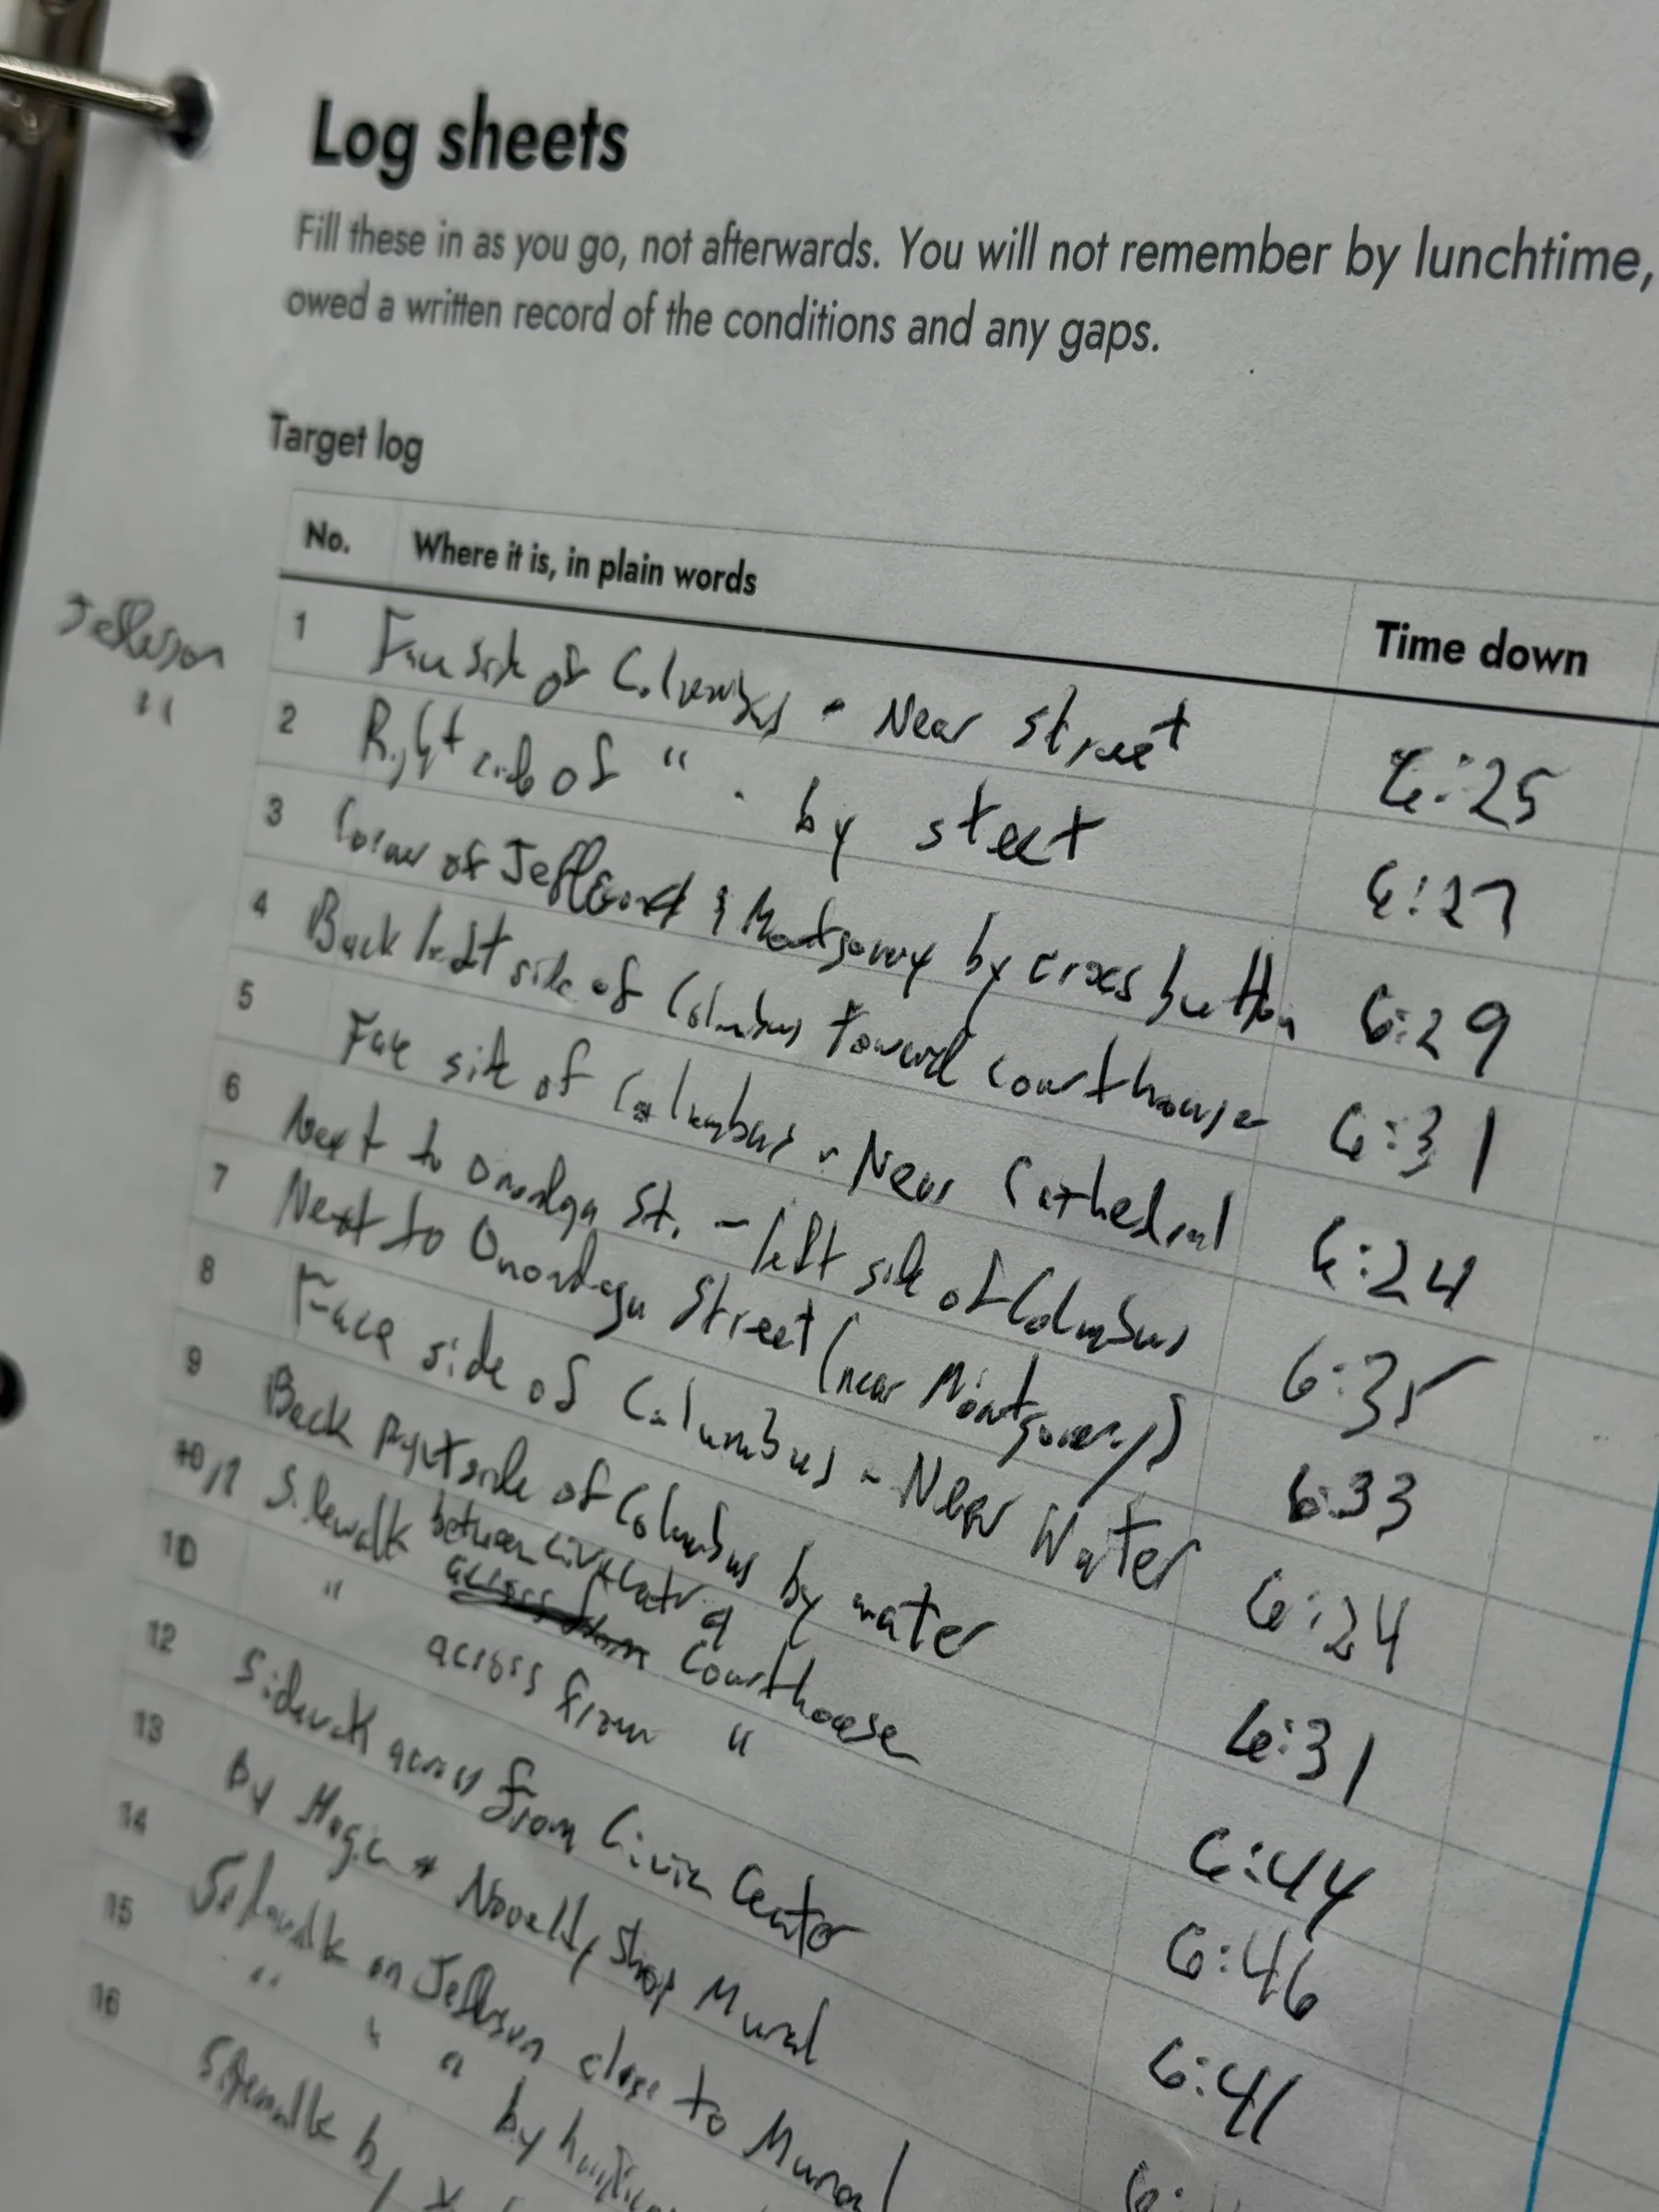 Log sheets
Fill these in as you go, not afterwards. You will not remember by lunchtime,
owed a written record of the conditions and any gaps.
Target log
No. Where it is, in plain words Time down
Jefferson
"
1 Face side of Columbus - Near street 6:25
2 Right side of " - by street 6:27
3 Corner of Jefferson & Montgomery by cross button 6:29
4 Back left side of Columbus toward courthouse 6:31
5 Face side of Columbus - Near Cathedral 6:24
6 Next to Onondaga St. - left side of Columbus 6:35
7 Next to Onondaga Street (near Montgomery) 6:33
8 Face side of Columbus - Near Water 6:24
9 Back right side of Columbus by water 6:31
Sidewalk between Civic Center & Courthouse 6:44
10 " across from " 6:46
12 Sidewalk across from Civic Center 6:41
13 By Magic & Novelty Shop Mural
14 Sidewalk on Jefferson close to Mural
15 " " " by
16 Sidewalk by